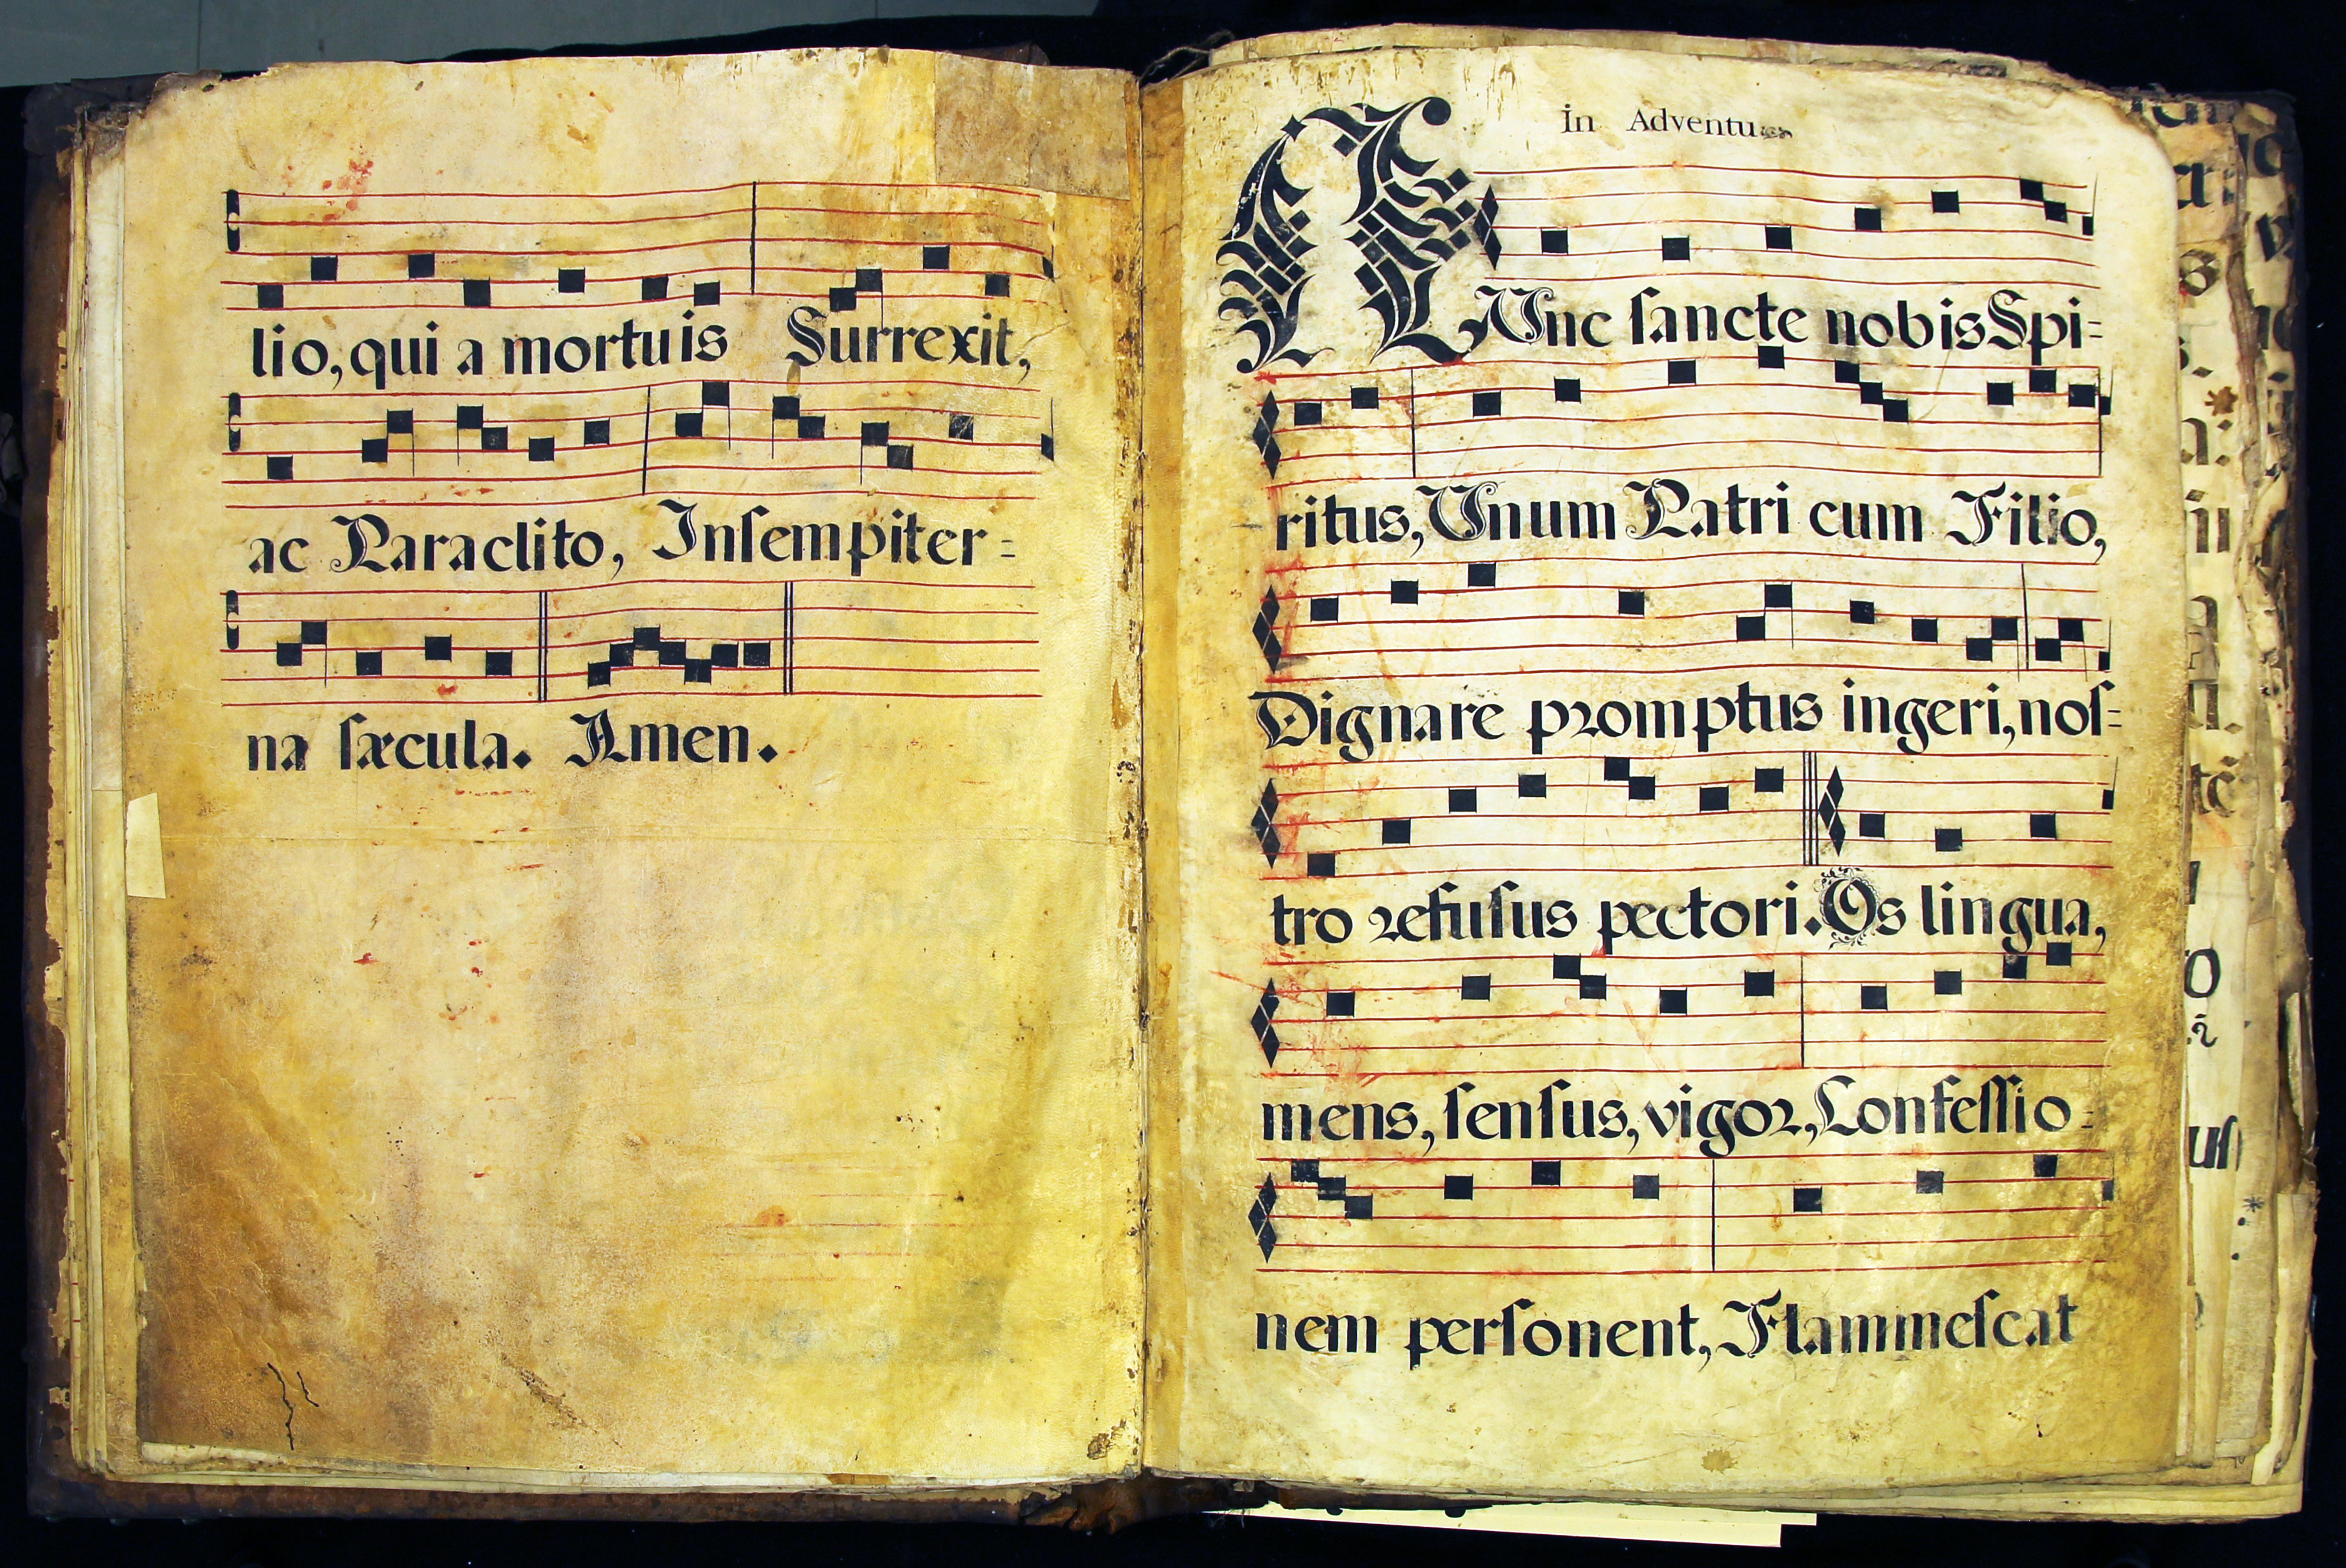 lio, qui a mortuis Surrexit,
ac Paraclito, Inſempiter=
na ſæcula. Amen.
In Adventu
NUnc ſancte nobis Spi=
ritus, Unum Patri cum Filio,
Dignare promptus ingeri, noſ=
tro refuſus pectori. Os lingua,
mens, ſenſus, vigor, Confeſſio=
nem perſonent, Flammeſcat